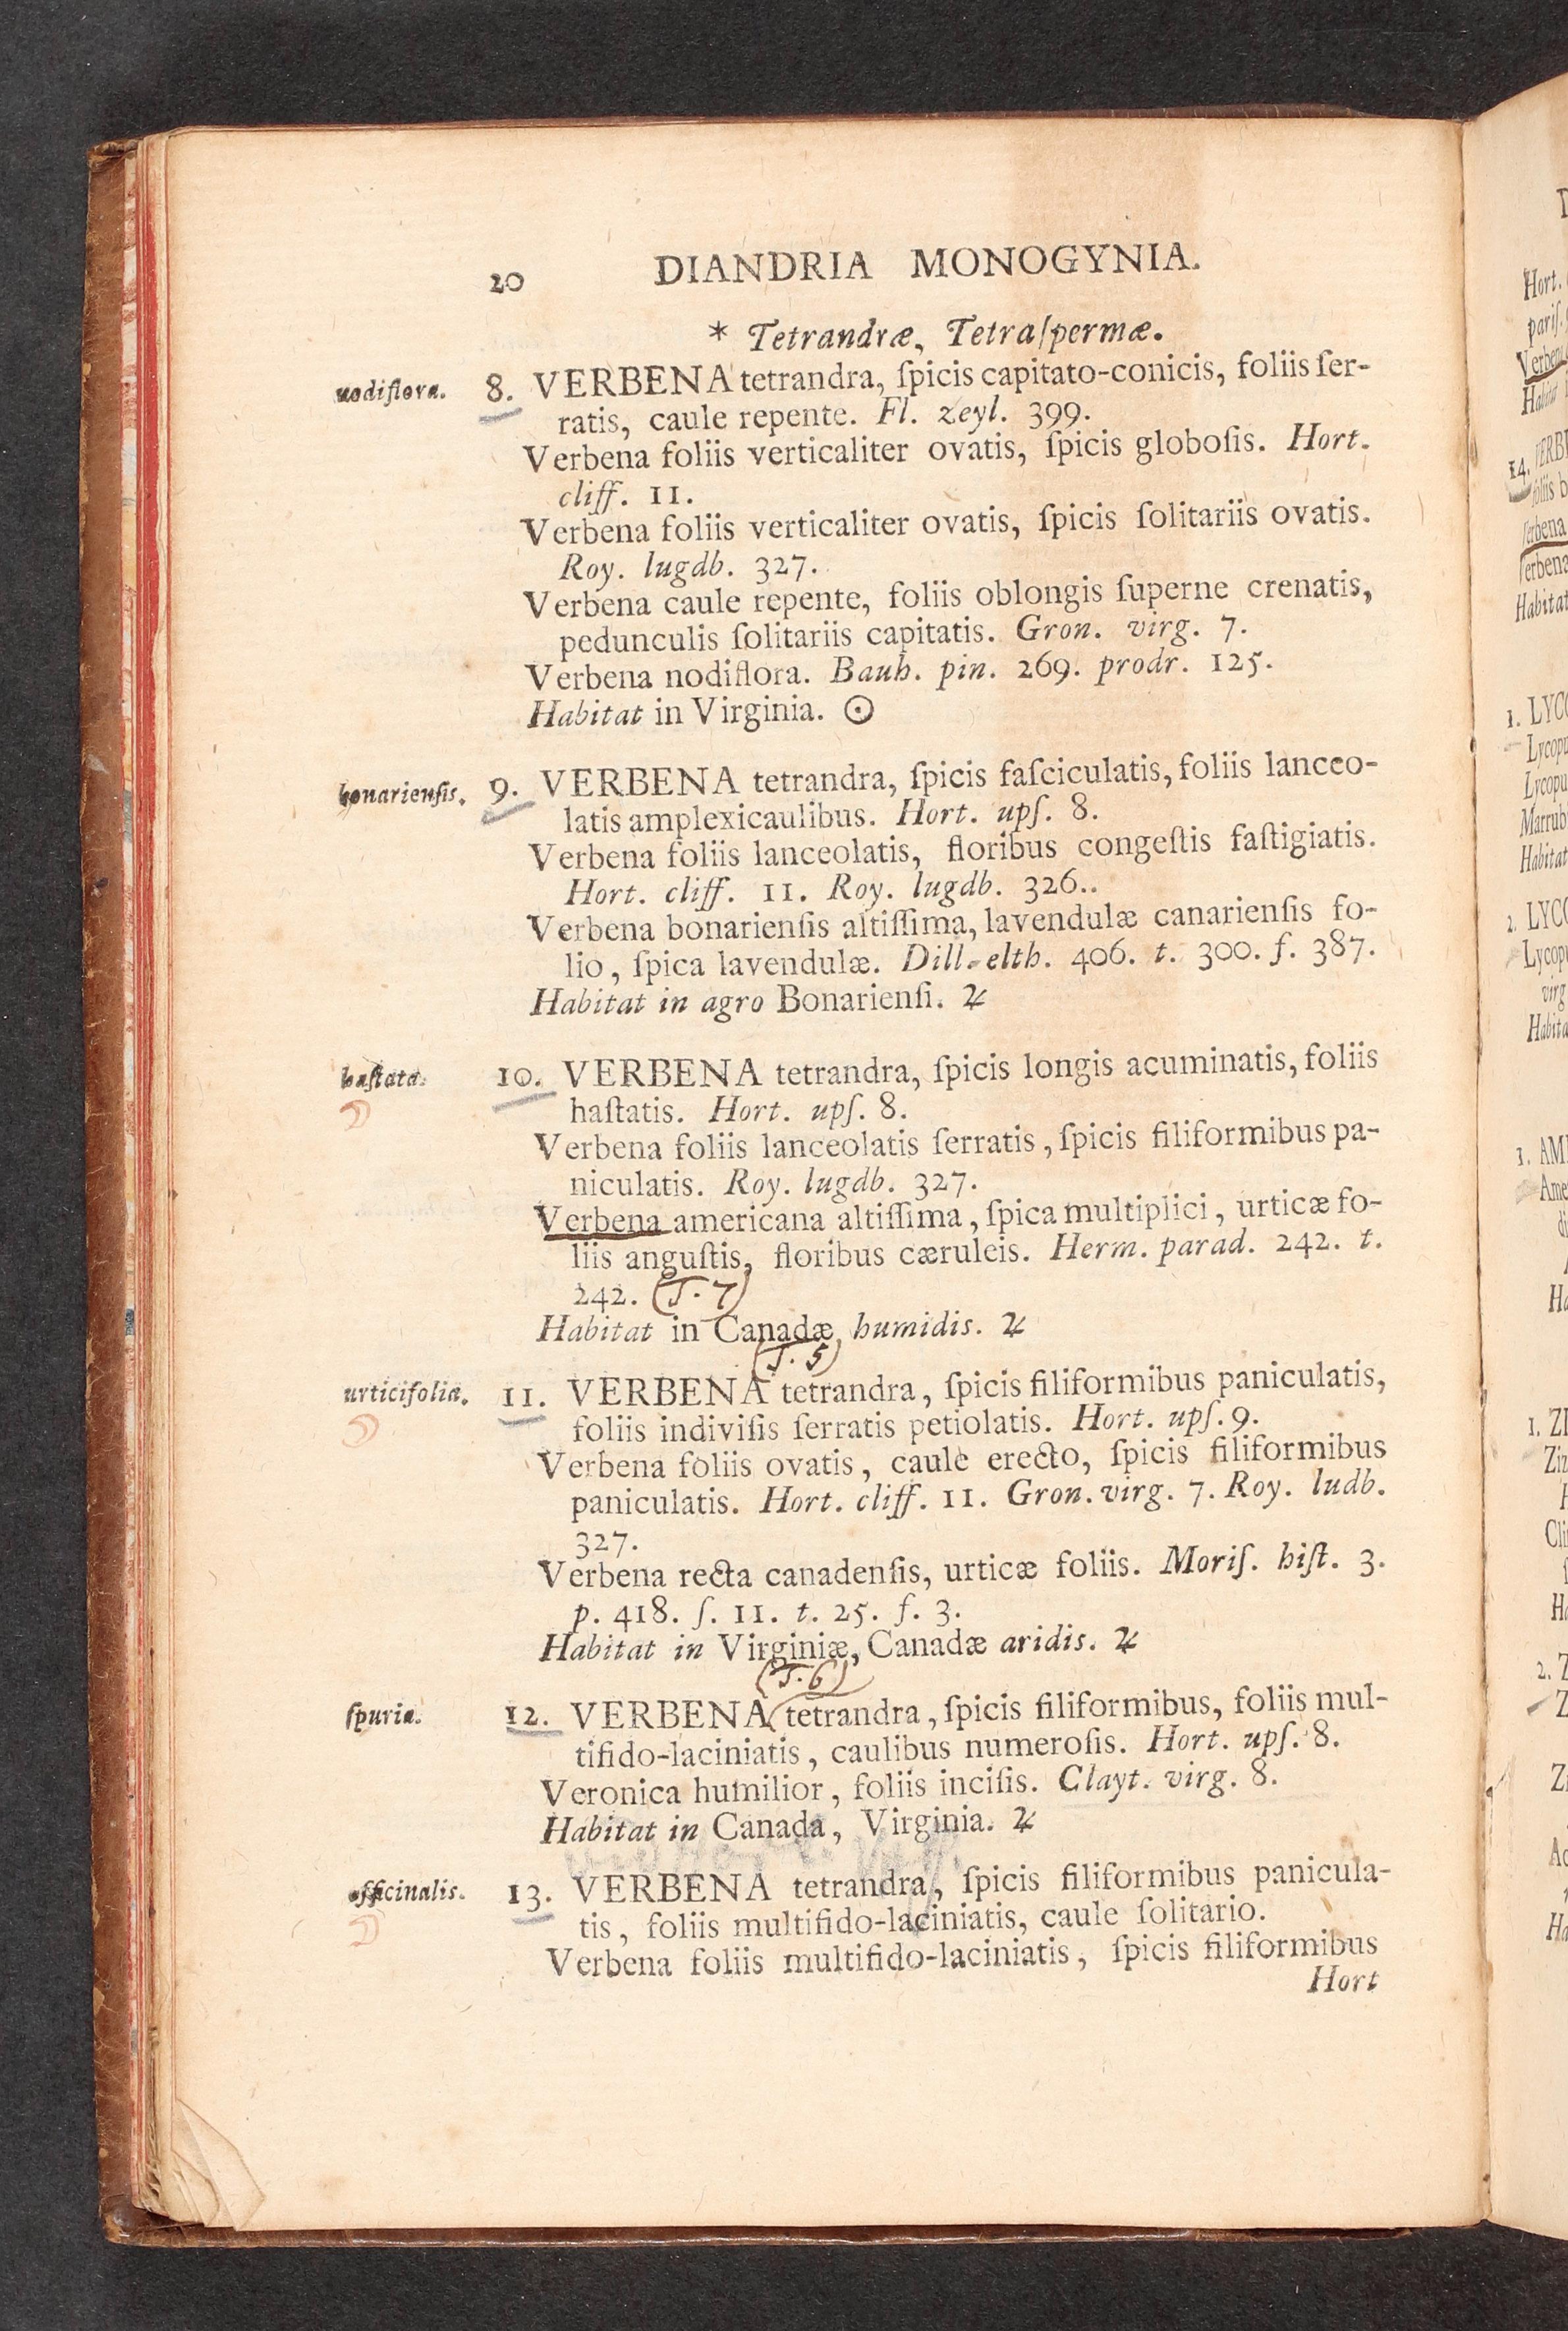 20 DIANDRIA MONOGYNIA.
* Tetrandræ, Tetraſpermæ.
nodiflora. 8. VERBENA tetrandra, ſpicis capitato-conicis, foliis ſer-
ratis, caule repente. Fl. zeyl. 399.
Verbena foliis verticaliter ovatis, ſpicis globoſis. Hort.
cliff. 11.
Verbena foliis verticaliter ovatis, ſpicis ſolitariis ovatis.
Roy. lugdb. 327.
Verbena caule repente, foliis oblongis ſuperne crenatis,
pedunculis ſolitariis capitatis. Gron. virg. 7.
Verbena nodiflora. Bauh. pin. 269. prodr. 125.
Habitat in Virginia. ☉
bonarienſis. 9. VERBENA tetrandra, ſpicis faſciculatis, foliis lanceo-
latis amplexicaulibus. Hort. upſ. 8.
Verbena foliis lanceolatis, floribus congeſtis faſtigiatis.
Hort. cliff. 11. Roy. lugdb. 326..
Verbena bonarienſis altiſſima, lavendulæ canarienſis fo-
lio, ſpica lavendulæ. Dill. elth. 406. t. 300. f. 387.
Habitat in agro Bonarienſi. ♃
haſtata. 10. VERBENA tetrandra, ſpicis longis acuminatis, foliis
haſtatis. Hort. upſ. 8.
Verbena foliis lanceolatis ſerratis, ſpicis filiformibus pa-
niculatis. Roy. lugdb. 327.
Verbena americana altiſſima, ſpica multiplici, urticæ fo-
liis anguſtis, floribus cæruleis. Herm. parad. 242. t.
242. (T. 7)
Habitat in Canadæ humidis. ♃
(T. 5)
urticifolia. 11. VERBENA tetrandra, ſpicis filiformibus paniculatis,
foliis indiviſis ſerratis petiolatis. Hort. upſ. 9.
Verbena foliis ovatis, caule erecto, ſpicis filiformibus
paniculatis. Hort. cliff. 11. Gron. virg. 7. Roy. ludb.
327.
Verbena recta canadenſis, urticæ foliis. Moriſ. hiſt. 3.
p. 418. ſ. 11. t. 25. f. 3.
Habitat in Virginiæ, Canadæ aridis. ♃
(T. 6)
ſpuria. 12. VERBENA tetrandra, ſpicis filiformibus, foliis mul-
tifido-laciniatis, caulibus numeroſis. Hort. upſ. 8.
Veronica humilior, foliis inciſis. Clayt. virg. 8.
Habitat in Canada, Virginia. ♃
officinalis. 13. VERBENA tetrandra, ſpicis filiformibus panicula-
tis, foliis multifido-laciniatis, caule ſolitario.
Verbena foliis multifido-laciniatis, ſpicis filiformibus
Hort
Hort.
pariſ.
Habitat
14.
foliis
Habitat
1.
Habitat
2.
virg
1.
1.
2.